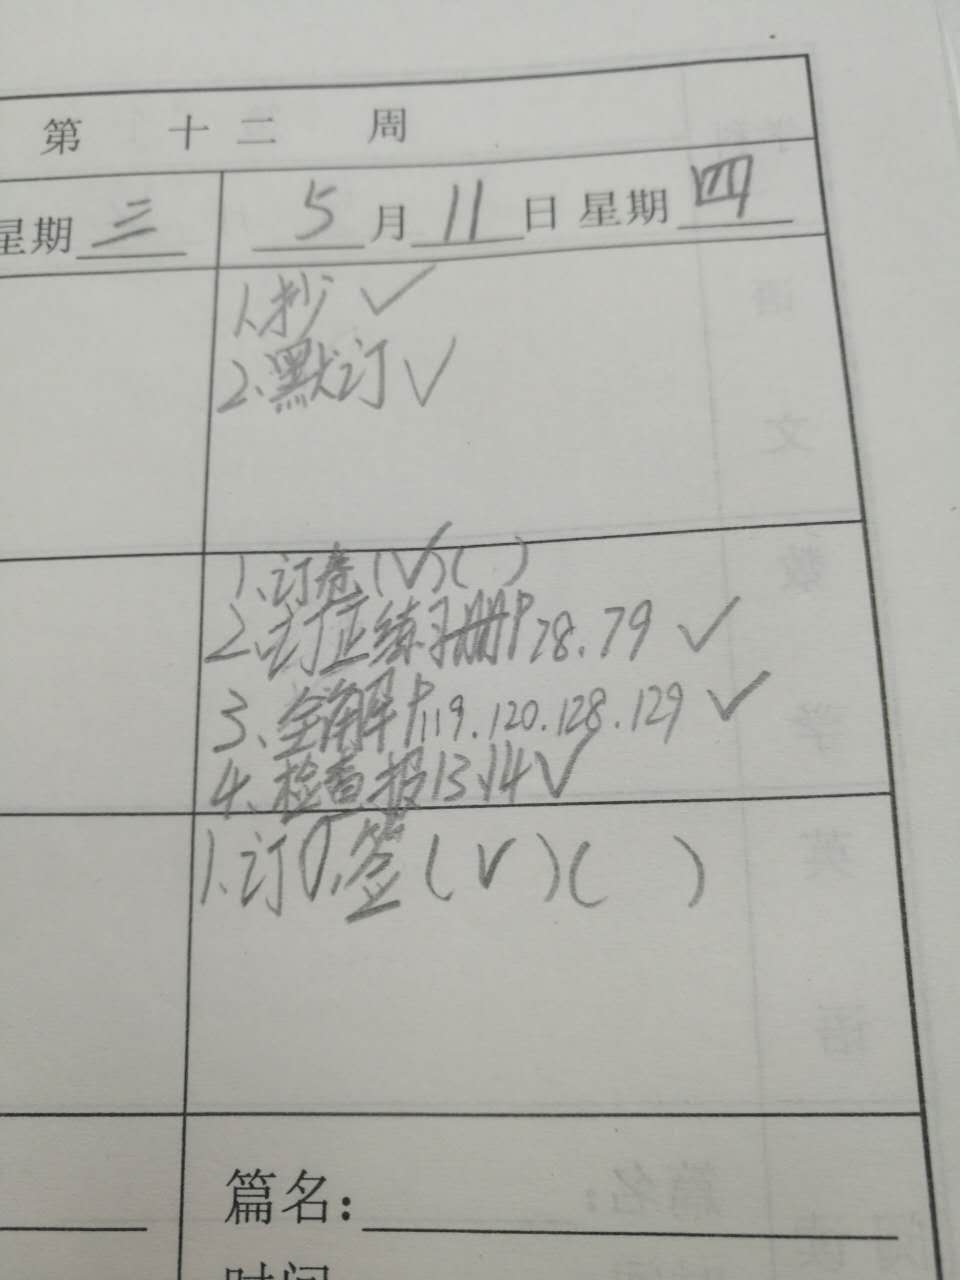 第 十二 周
星期 三
5 月 11 日 星期 四
1、抄 ✓
2、默订 ✓
1、订卷(✓)( )
2、订正练习册P78、79 ✓
3、全解P119.120.128.129 ✓
4、检查报13、14 ✓
1、订
签(✓)( )
篇名:
时间